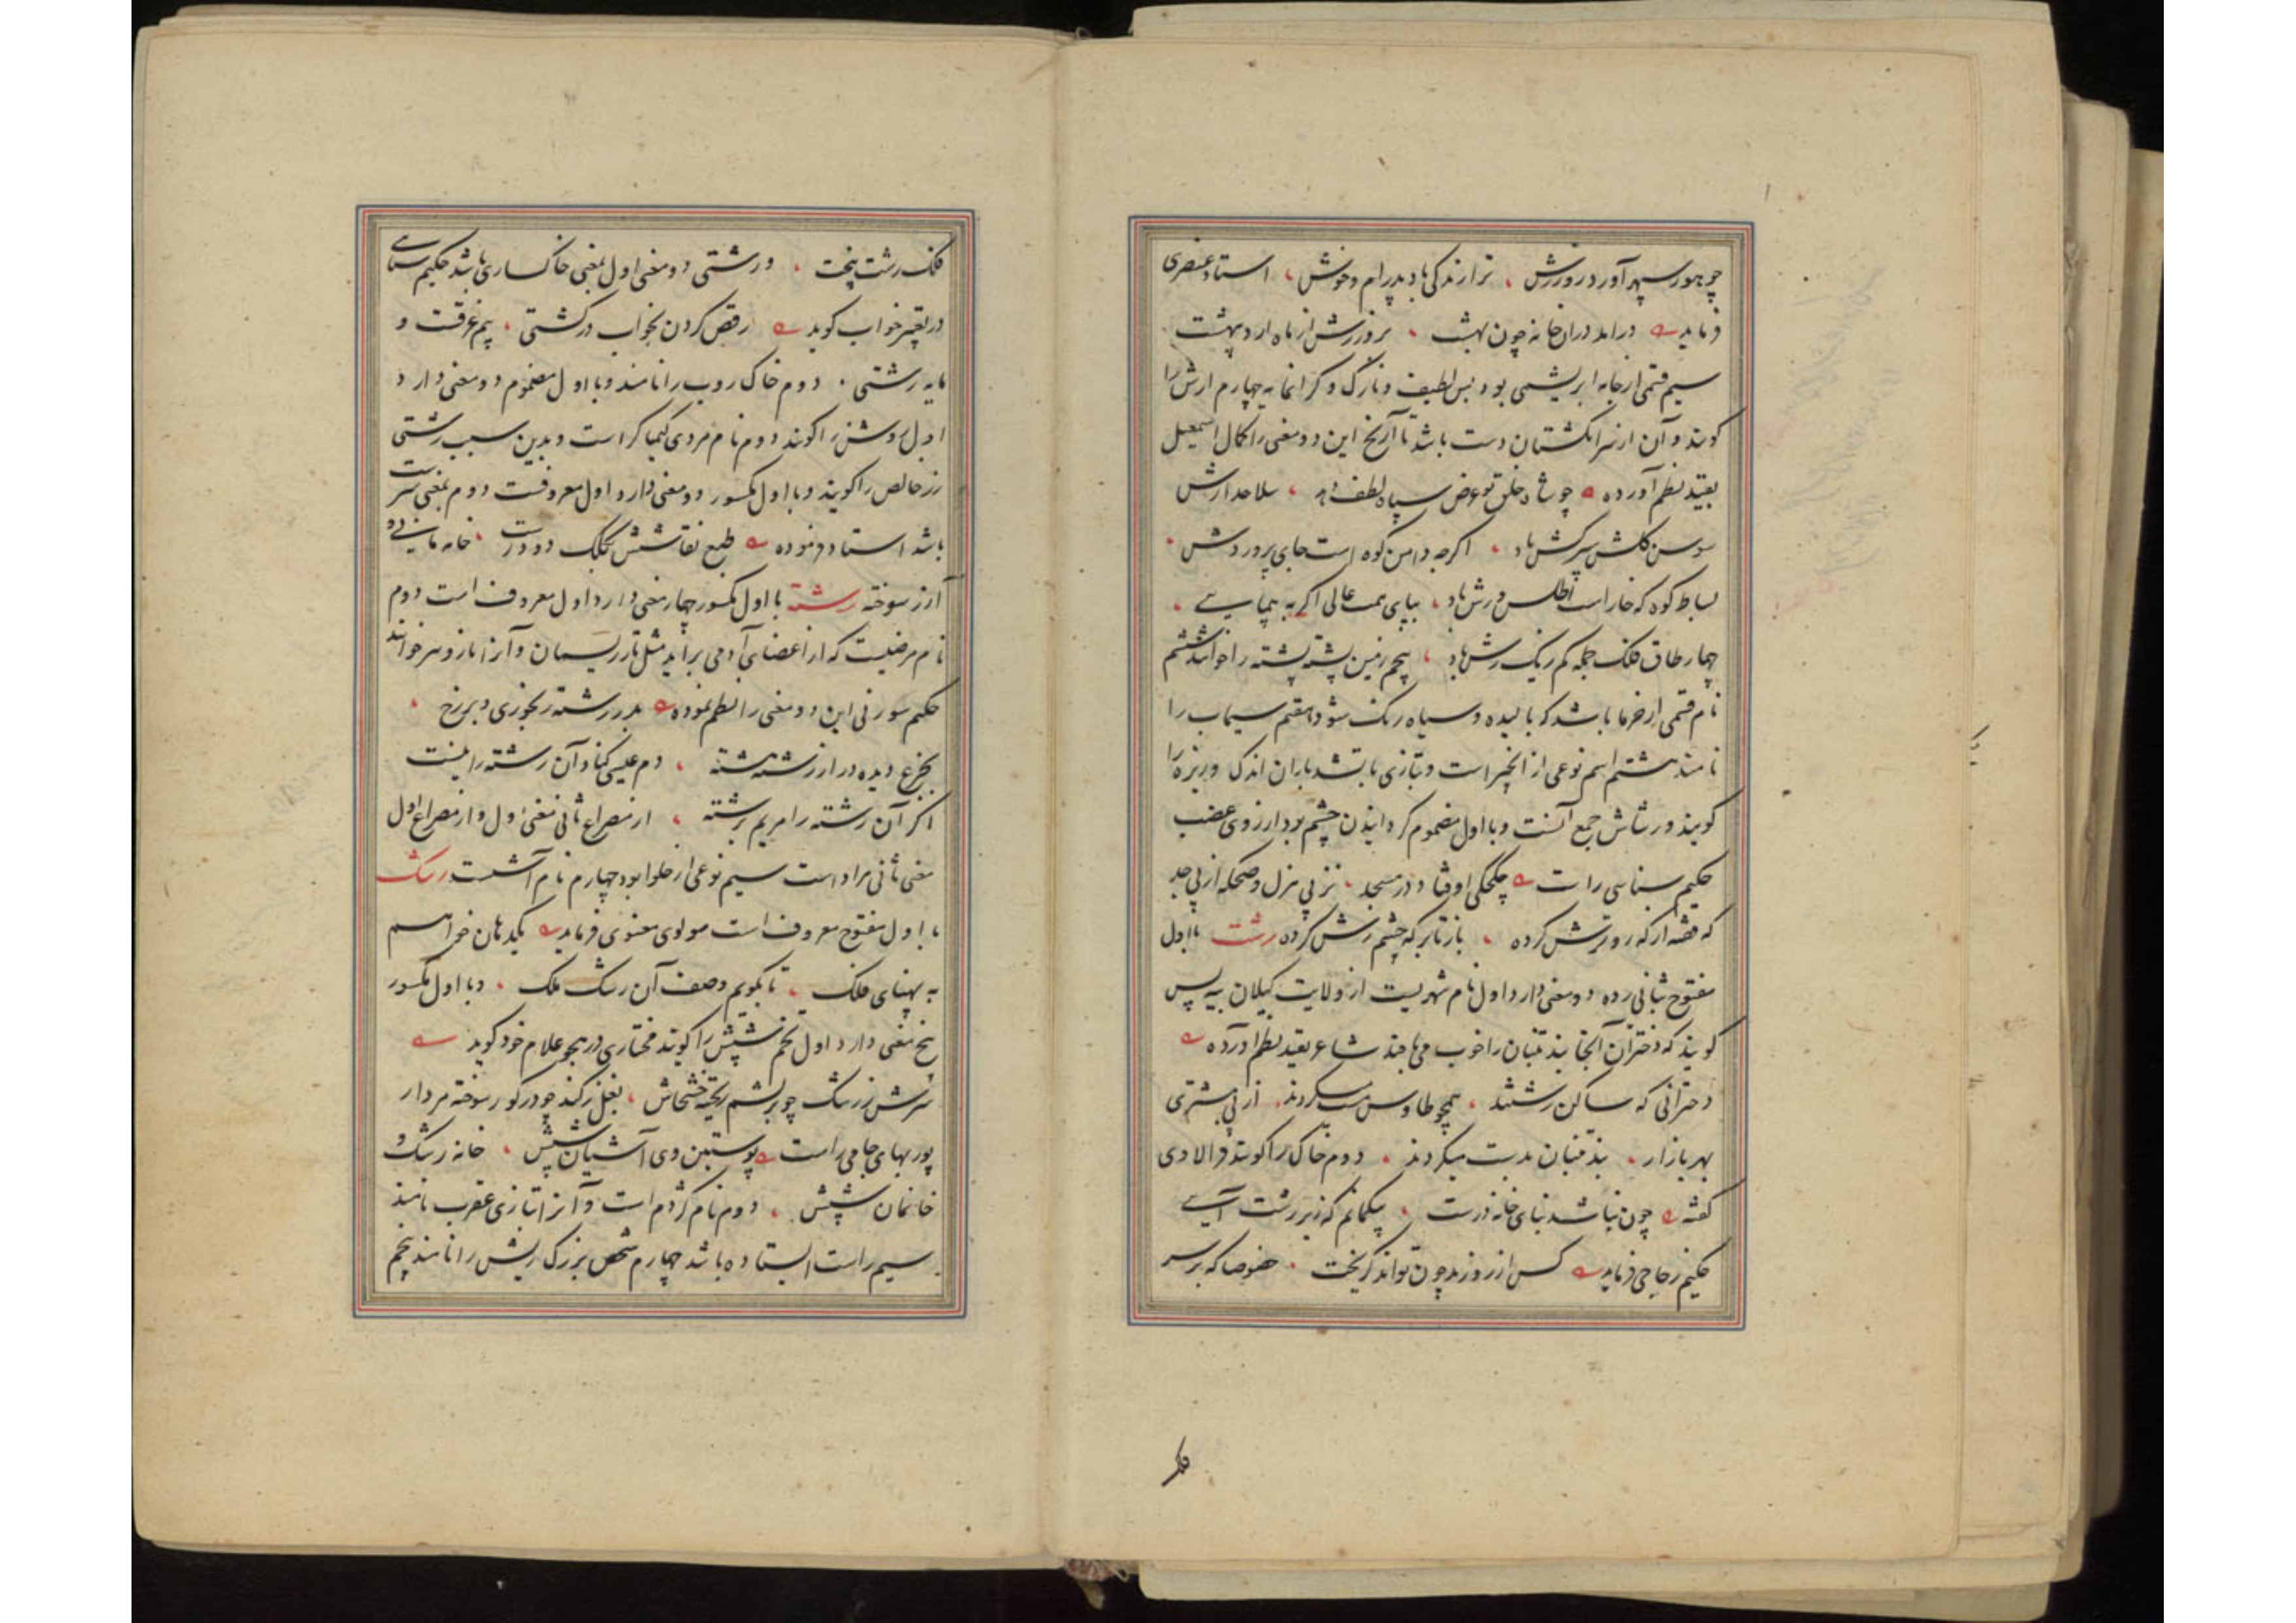 چو هور سپهر آورد روز رش ، ترا زندگی باد پدرام و خوش ، استاد عنصری
فرماید درامد دران خانه چون بهشت ، بروز رش از ماه اردیبهشت
سیم قسمی از جامه ابریشمی بود بس لطیف و نازک و گرانمایه چهارم ارش را
کویند و آن از سر انکشتان دست باشد تا آرنج این دو معنی را کمال اسمعیل
بقید نظم آورده چو شاه خلق تو عرض سپاه لطف دهد ، سلاحدارش
سوسن کلش سرکش باد ، اکرچه دامن کوه است جای پروردش ،
بساط کوه که خاراست اطلس و رش باد ، بپای همت عالی اکر به پیمایی ،
چهار طاق فلک جمله کم ز یک رش باد ، پنجم زمین پشته پشته را خوانند ششم
نام قسمی از خرما باشد که بالیده و سیاه رنک شود هفتم سیماب را
نامند هشتم اسم نوعی از انجیر است و بتازی با تشدید باران اندک و ریزه را
کویند و رشاش جمع آنست و با اول مضموم کردانیدن چشم بود از روی غضب
حکیم سنایی راست چکچکی اوفتاد در مسجد ، نز پی هزل و ضحکه از پی جد
که فقه از که رو ترش کرده ، باز تا بر که چشم رش کرده رشت با اول
مفتوح بثانی زده دو معنی دارد اول نام شهریست از ولایت کیلان بیه پس
کویند که دختران آنجا بند تنبان را خوب می بافند شاعر بقید نظم آورده
دخترانی که ساکن رشتند ، همچو طاوس مست میکردند ، از پی مشتری
بهر بازار ، بند تنبان بدست میکردند ، دوم خاک را کویند فرالاوی
کفته چون نباشد بنای خانه درست ، بیکمانم که زیر رشت آیی
حکیم زجاجی فرماید کس از روز بد چون تواند کریخت ، خصوصا که بر سر
فلک
فلک رشت بیخت ، و رشتی دو معنی اول بمعنی خاکساری باشد حکیم سنایی
در تعبیر خواب کوید رقص کردن بخواب در کشتی ، بیم غرقست و
مایه رشتی ، دوم خاک روب را نامند و با اول مضموم دو معنی دارد
اول روشن را کویند دوم نام مردی کیمیاکر است و بدین سبب رشتی
زر خالص را کویند و با اول مکسور دو معنی دارد اول معروفست دوم بمعنی سرشت
باشد استاد فرموده طبع نقاشش بکلک دو درشت ، خانه مانی و
آزر سوخته رشته با اول مکسور چهار معنی دارد اول معروف است دوم
نام مرضیست که از اعضای آدمی براید مثل تار ریسمان و آنرا نارو نیز خوانند
حکیم سوزنی این دو معنی را نظم نموده بدرد رشته رنجوری و بر رخ ،
بجزع دیده در از رشته رشته ، دم عیسی کناد آن رشته را نیست
اکر آن رشته را مریم برشته ، از مصراع ثانی معنی اول و از مصراع اول
معنی ثانی مراد است سیم نوعی از حلوا بود چهارم نام آشست رشک
با اول مفتوح معروف است مولوی معنوی فرماید یکدهان خواهم
به پهنای فلک ، تا بکویم وصف آن رشک ملک ، و با اول مکسور
پنج معنی دارد اول تخم شپش را کویند مختاری در هجو غلام خود کوید
سرش ز رشک چو بر پشم ریخته خشخاش ، بغل ز کند چو در کور سوخته مردار
پور بهای جامی راست پوستین وی آشیان شپش ، خانه رشک و
خانمان شپش ، دوم نام کژدم است و آنرا بتازی عقرب نامند
سیم راست ایستاده باشد چهارم شخص بزرک ریش را نامند پنجم